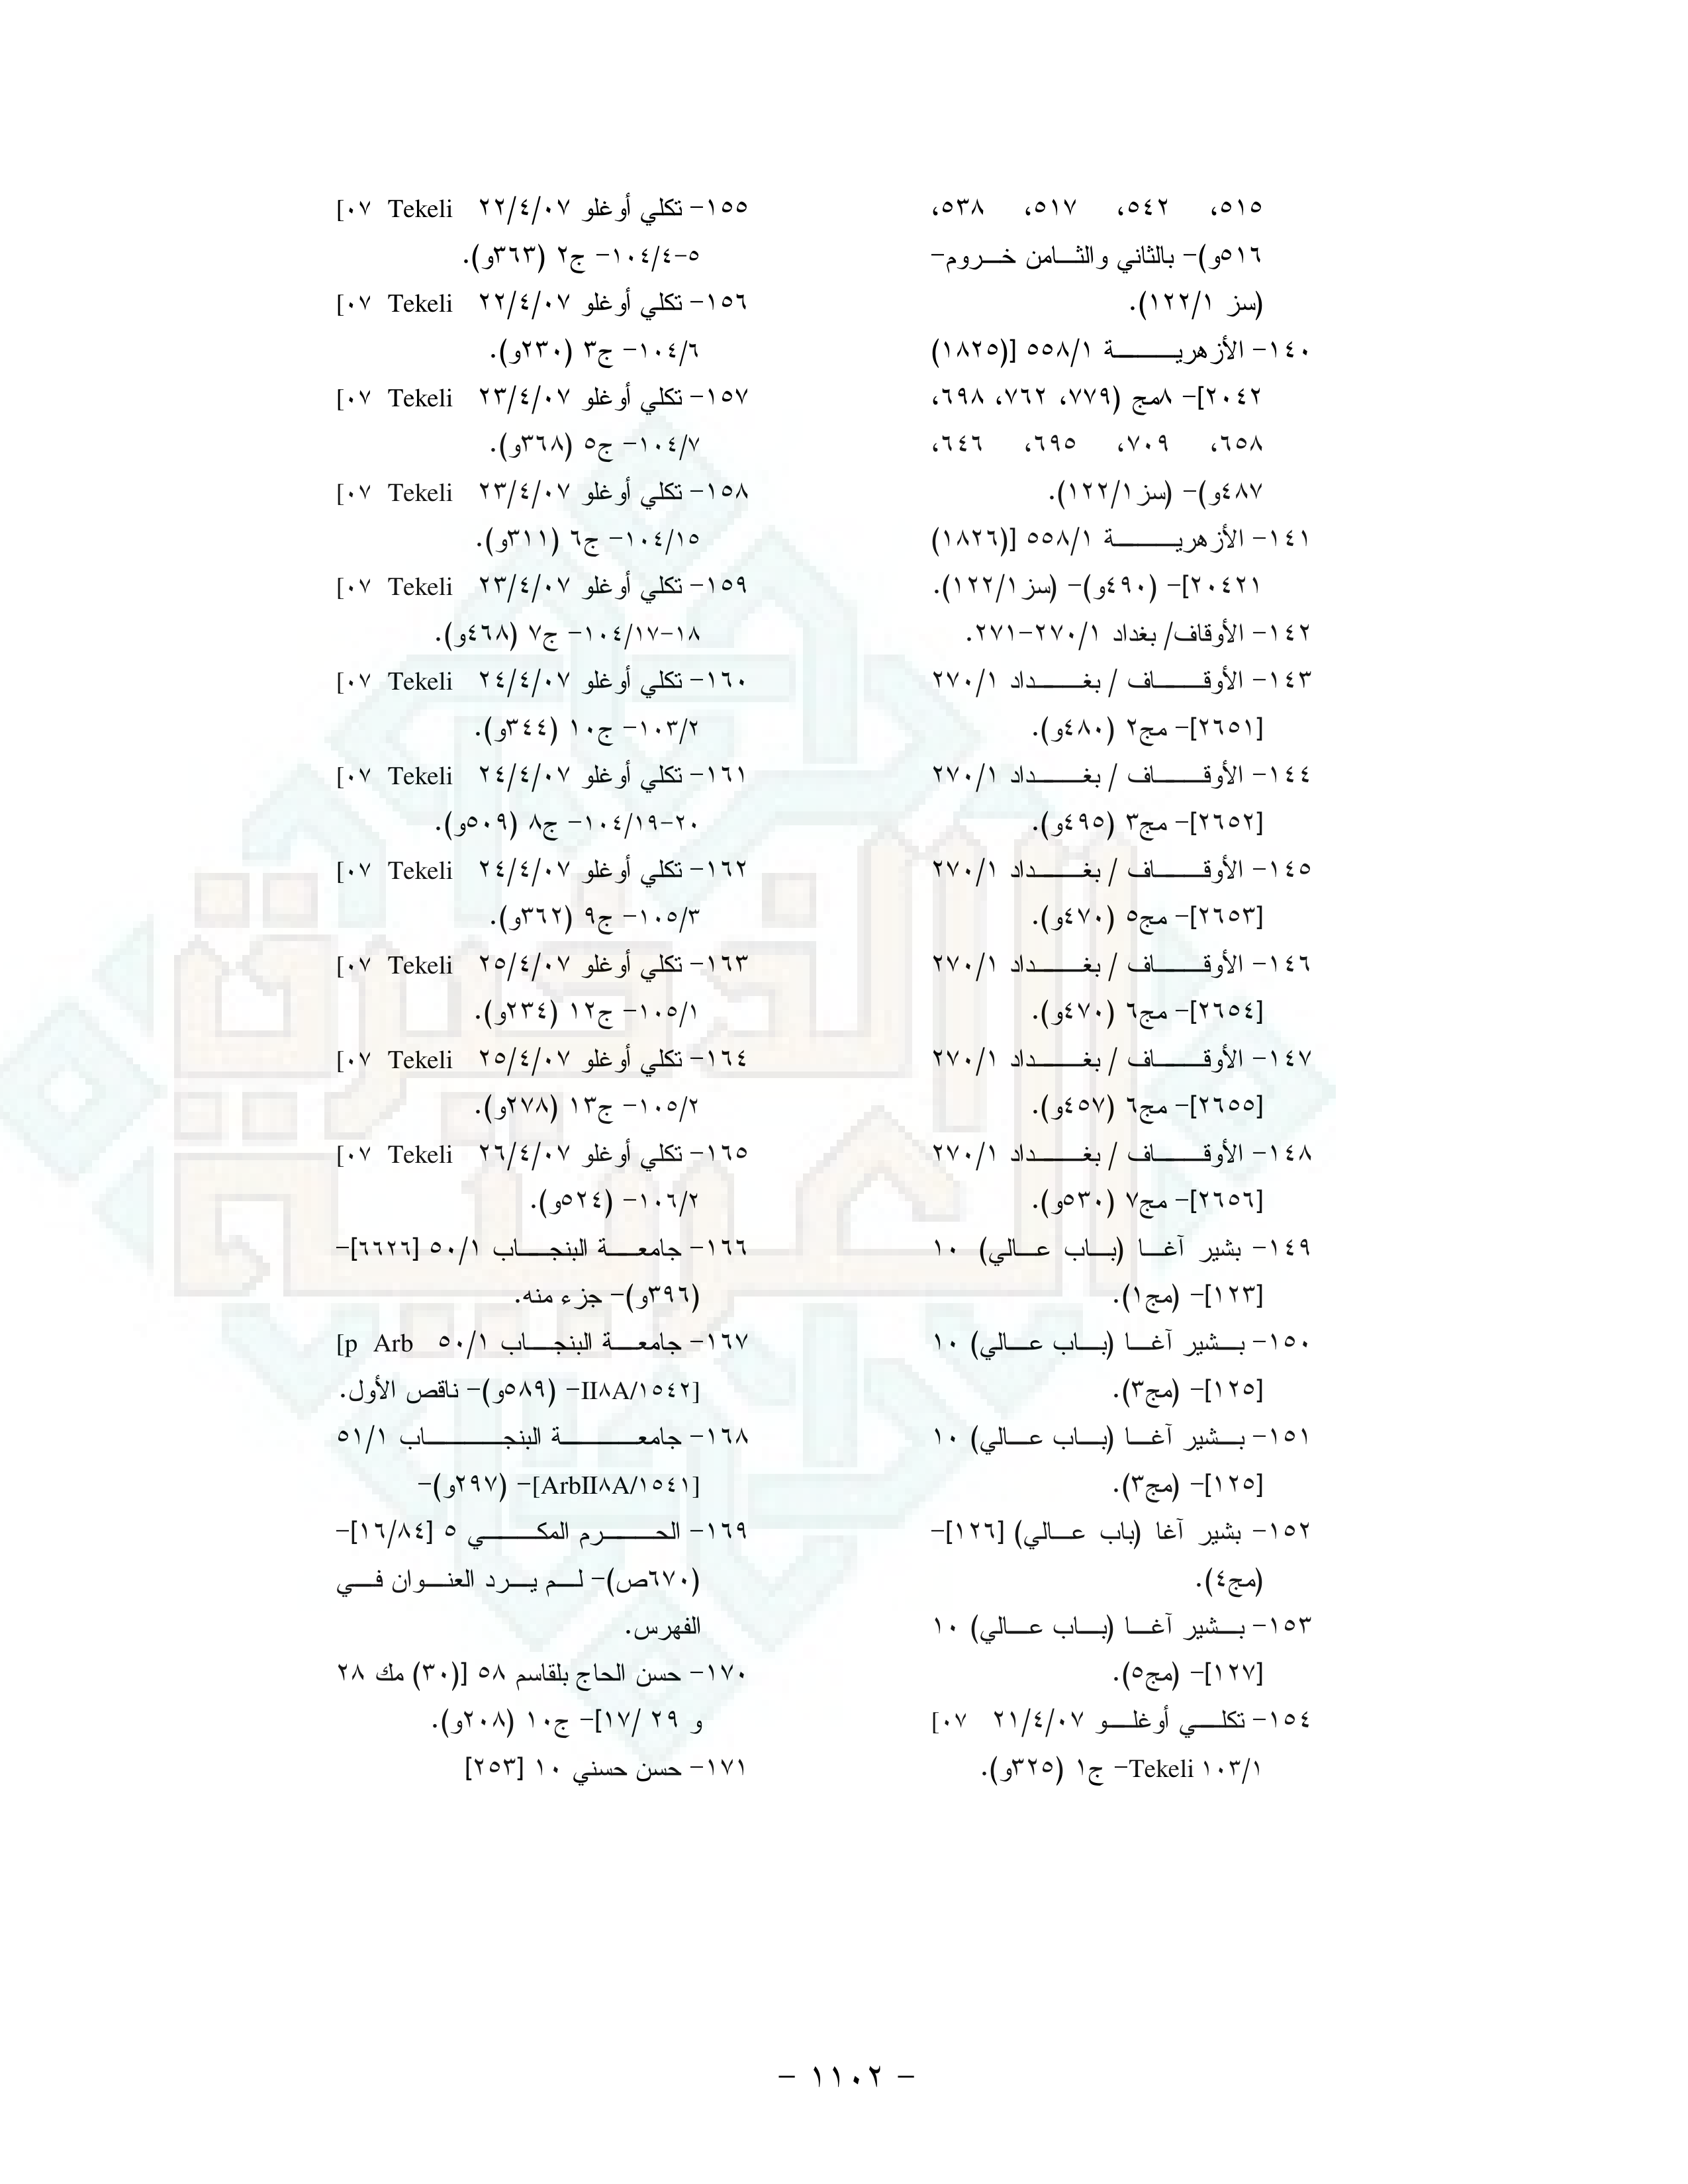 ٥١٥، ٥٤٢، ٥١٧، ٥٣٨،
٥١٦و)- بالثاني والثامن خروم-
(سز ١٢٢/١).
١٤٠- الأزهرية ٥٥٨/١ [(١٨٢٥)
٢٠٤٢]- ٨مج (٧٧٩، ٧٦٢، ٦٩٨،
٦٥٨، ٧٠٩، ٦٩٥، ٦٤٦،
٤٨٧و)- (سز١٢٢/١).
١٤١- الأزهرية ٥٥٨/١ [(١٨٢٦)
٢٠٤٢١]- (٤٩٠و)- (سز١٢٢/١).
١٤٢- الأوقاف/ بغداد ٢٧٠/١-٢٧١.
١٤٣- الأوقاف / بغداد ٢٧٠/١
[٢٦٥١]- مج٢ (٤٨٠و).
١٤٤- الأوقاف / بغداد ٢٧٠/١
[٢٦٥٢]- مج٣ (٤٩٥و).
١٤٥- الأوقاف / بغداد ٢٧٠/١
[٢٦٥٣]- مج٥ (٤٧٠و).
١٤٦- الأوقاف / بغداد ٢٧٠/١
[٢٦٥٤]- مج٦ (٤٧٠و).
١٤٧- الأوقاف / بغداد ٢٧٠/١
[٢٦٥٥]- مج٦ (٤٥٧و).
١٤٨- الأوقاف / بغداد ٢٧٠/١
[٢٦٥٦]- مج٧ (٥٣٠و).
١٤٩- بشير آغا (باب عالي) ١٠
[١٢٣]- (مج١).
١٥٠- بشير آغا (باب عالي) ١٠
[١٢٥]- (مج٣).
١٥١- بشير آغا (باب عالي) ١٠
[١٢٥]- (مج٣).
١٥٢- بشير آغا (باب عالي) [١٢٦]-
(مج٤).
١٥٣- بشير آغا (باب عالي) ١٠
[١٢٧]- (مج٥).
١٥٤- تكلي أوغلو ٢١/٤/٠٧ ٠٧]
١٠٣/١ Tekeli- ج١ (٣٢٥و).
١٥٥- تكلي أوغلو ٢٢/٤/٠٧ Tekeli ٠٧]
١٠٤/٤-٥- ج٢ (٣٦٣و).
١٥٦- تكلي أوغلو ٢٢/٤/٠٧ Tekeli ٠٧]
١٠٤/٦- ج٣ (٢٣٠و).
١٥٧- تكلي أوغلو ٢٣/٤/٠٧ Tekeli ٠٧]
١٠٤/٧- ج٥ (٣٦٨و).
١٥٨- تكلي أوغلو ٢٣/٤/٠٧ Tekeli ٠٧]
١٠٤/١٥- ج٦ (٣١١و).
١٥٩- تكلي أوغلو ٢٣/٤/٠٧ Tekeli ٠٧]
١٠٤/١٧-١٨- ج٧ (٤٦٨و).
١٦٠- تكلي أوغلو ٢٤/٤/٠٧ Tekeli ٠٧]
١٠٣/٢- ج١٠ (٣٤٤و).
١٦١- تكلي أوغلو ٢٤/٤/٠٧ Tekeli ٠٧]
١٠٤/١٩-٢٠- ج٨ (٥٠٩و).
١٦٢- تكلي أوغلو ٢٤/٤/٠٧ Tekeli ٠٧]
١٠٥/٣- ج٩ (٣٦٢و).
١٦٣- تكلي أوغلو ٢٥/٤/٠٧ Tekeli ٠٧]
١٠٥/١- ج١٢ (٢٣٤و).
١٦٤- تكلي أوغلو ٢٥/٤/٠٧ Tekeli ٠٧]
١٠٥/٢- ج١٣ (٢٧٨و).
١٦٥- تكلي أوغلو ٢٦/٤/٠٧ Tekeli ٠٧]
١٠٦/٢- (٥٢٤و).
١٦٦- جامعة البنجاب ٥٠/١ [٦٦٢٦]-
(٣٩٦و)- جزء منه.
١٦٧- جامعة البنجاب ٥٠/١ p Arb]
[II٨A/١٥٤٢- (٥٨٩و)- ناقص الأول.
١٦٨- جامعة البنجاب ٥١/١
[ArbII٨A/١٥٤١]- (٢٩٧و)-
١٦٩- الحرم المكي ٥ [١٦/٨٤]-
(٦٧٠ص)- لم يرد العنوان في
الفهرس.
١٧٠- حسن الحاج بلقاسم ٥٨ [(٣٠) مك ٢٨
و ٢٩ /١٧]- ج١٠ (٢٠٨و).
١٧١- حسن حسني ١٠ [٢٥٣]
- ١١٠٢ -
الذخيرة
العربية